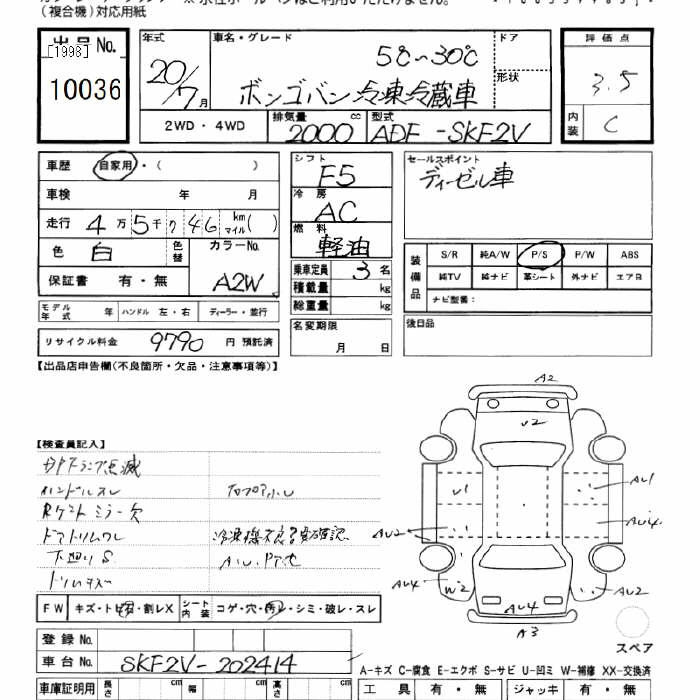 (複合機)対応用紙
出品No. [1998] 10036
年式 20/7月
車名・グレード 5℃~30℃
ボンゴバン 冷凍冷蔵車
ドア
形状
2WD・4WD
排気量 2000 cc
型式 ADF-SKF2V
評価点 3.5
内装 C
車歴 自家用・( )
車検 年 月
走行 4万5千746 km マイル( )
色 白 色替 カラーNo. A2W
保証書 有・無
モデル年式 年 ハンドル 左・右 ディーラー・並行
リサイクル料金 9790 円 預託済
シフト F5
冷房 AC
燃料 軽油
乗車定員 3 名
積載量 kg
総重量 kg
名変期限 月 日
セールスポイント
ディーゼル車
装備品
S/R 純A/W P/S P/W ABS
純TV 純ナビ 革シート 外ナビ エアB
ナビ型番:
後日品
【出品店申告欄(不良箇所・欠品・注意事項等)】
【検査員記入】
ハンドルスレ
Rゲートミラー欠
ドアトリムワレ
下廻りS
FW キズ・ト ・割レX シート内装 コゲ・穴・ ・シミ・破レ・スレ
登録No.
車台No. SKF2V-202414
車庫証明用 長さ cm 幅 cm 高さ cm
A2
V2
V1
AU1
AU4
AU2
AU4
W2
AU2
AU4
A3
スペア
A-キズ C-腐食 E-エクボ S-サビ U-凹ミ W-補修 XX-交換済
工具 有・無 ジャッキ 有・無